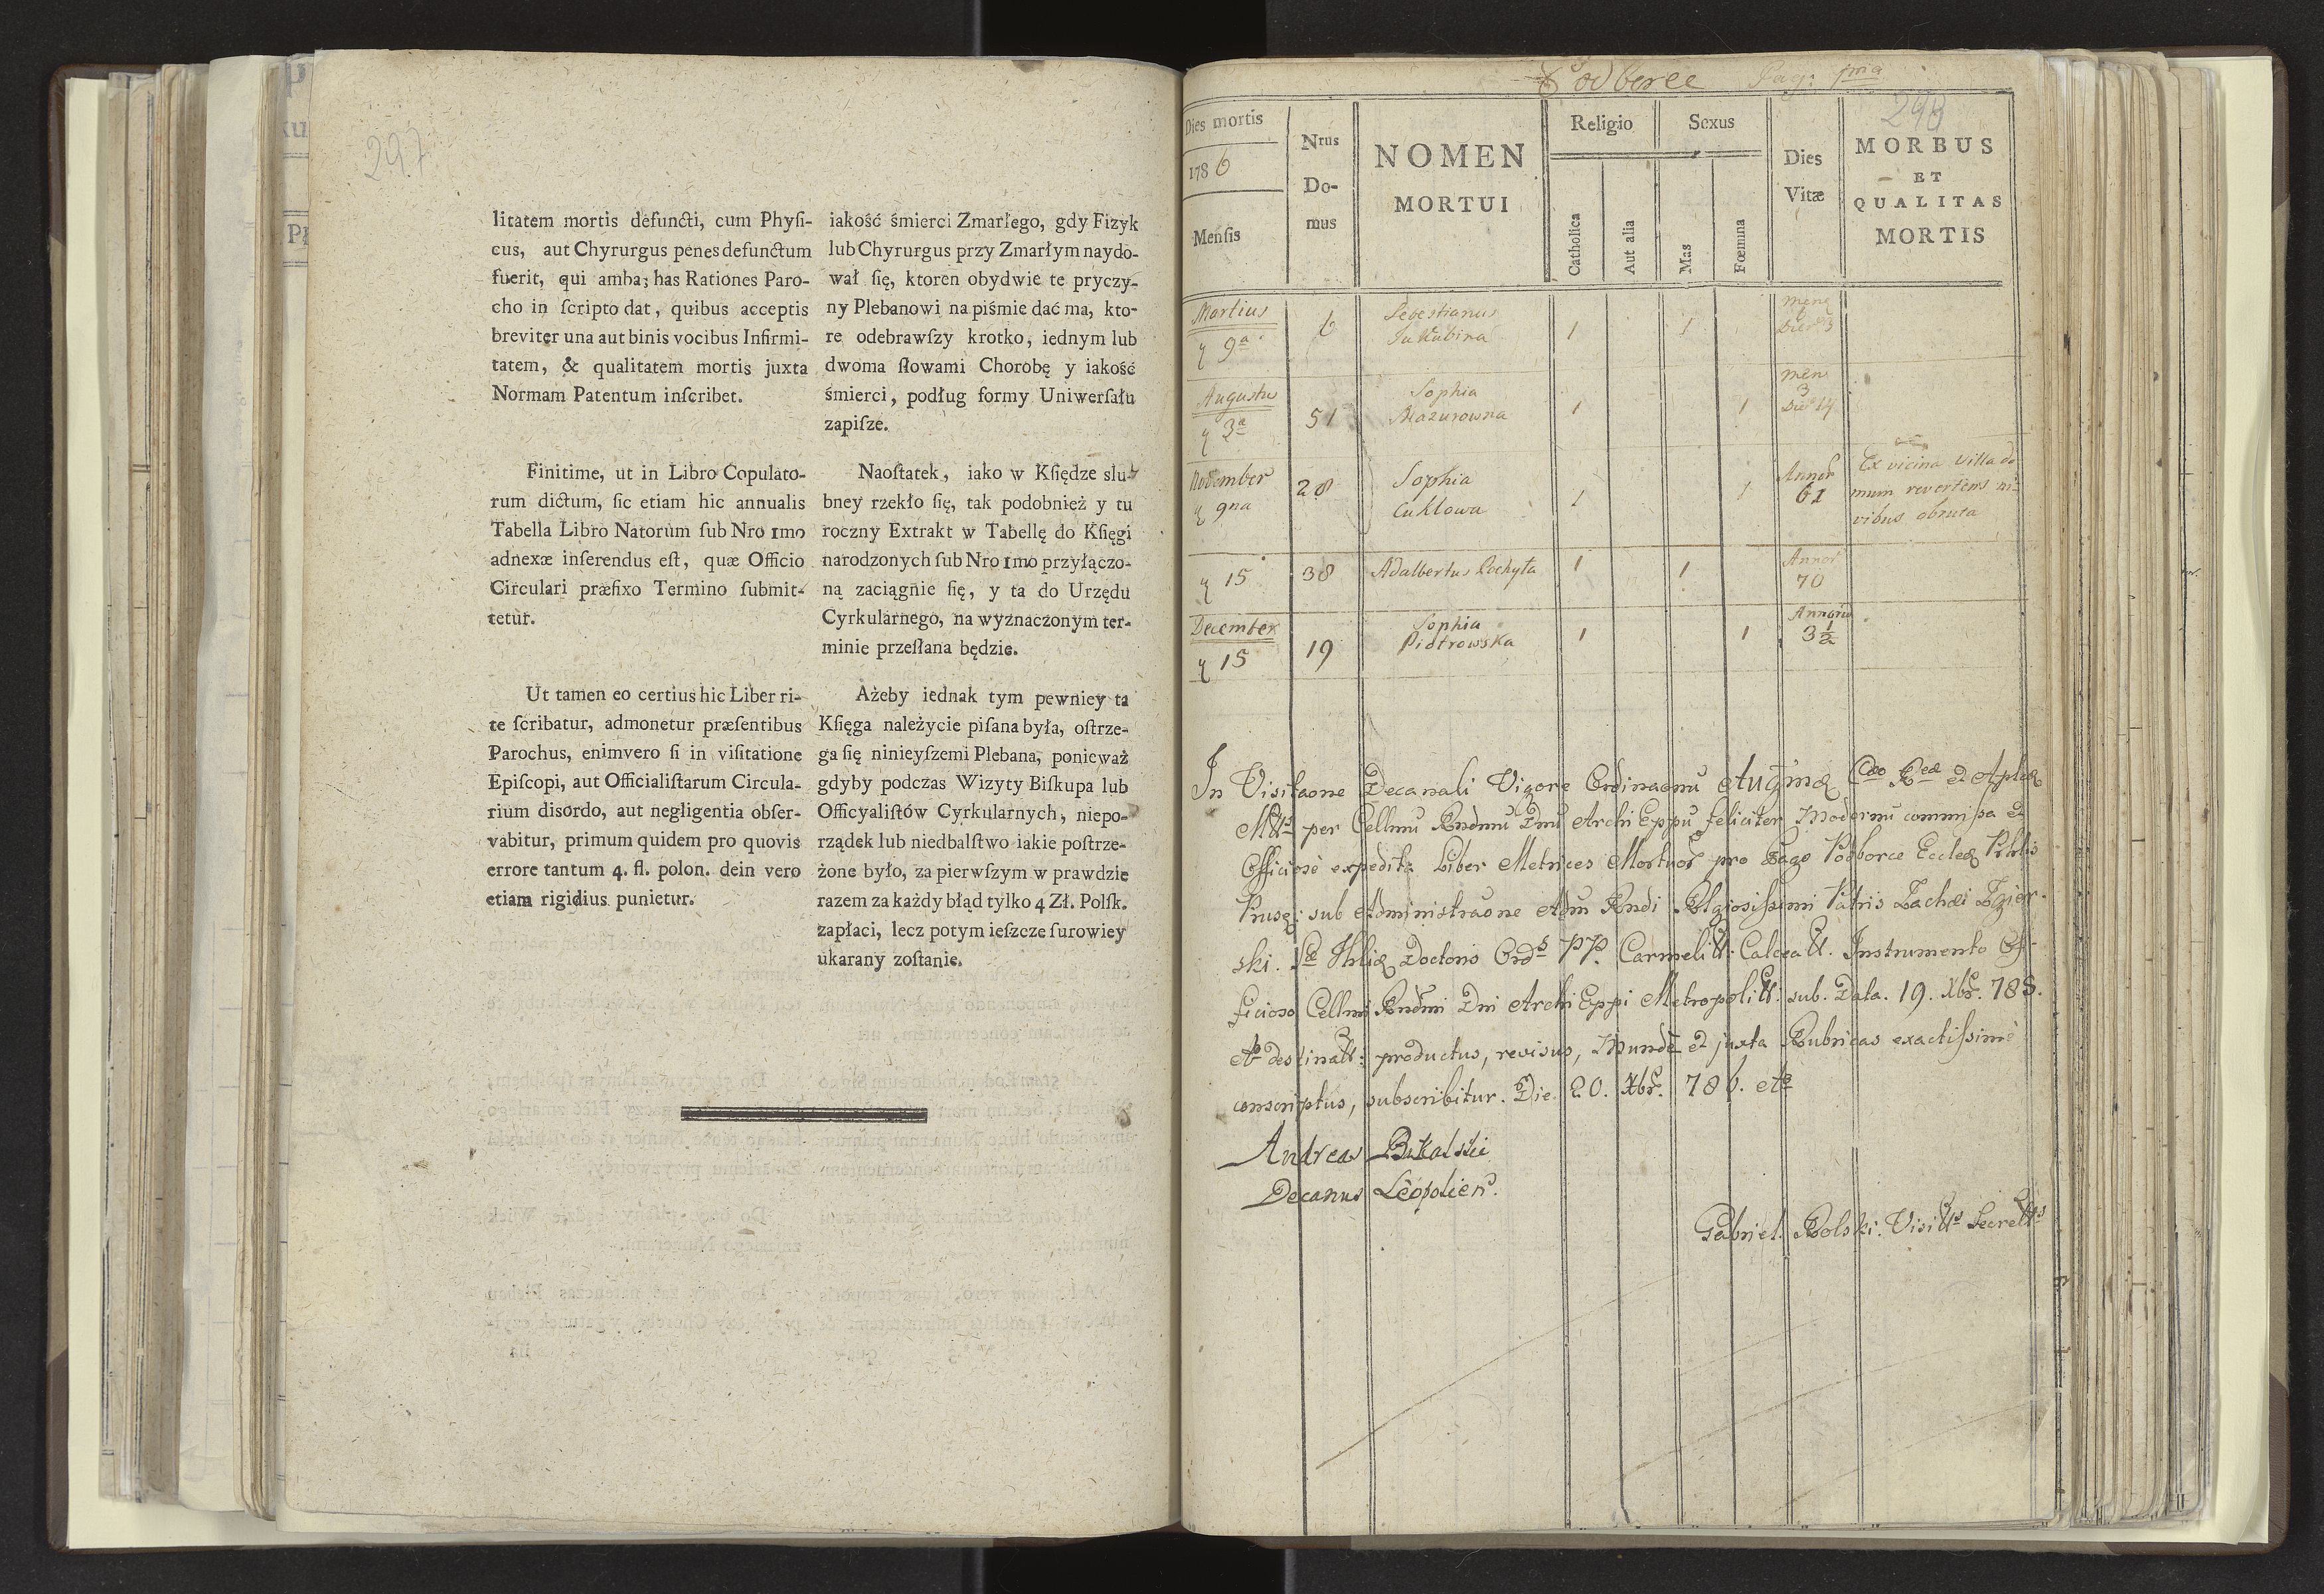 297
litatem mortis defuncti, cum Phyſi-
cus, aut Chyrurgus penes defunctum
fuerit, qui amba; has Rationes Paro-
cho in ſcripto dat, quibus acceptis
breviter una aut binis vocibus Infirmi-
tatem, & qualitatem mortis juxta
Normam Patentum inſcribet.
Finitime, ut in Libro Copulato-
rum dictum, ſic etiam hic annualis
Tabella Libro Natorum ſub Nro 1mo
adnexæ inſerendus eſt, quæ Officio
Circulari præfixo Termino ſubmit-
tetur.
Ut tamen eo certius hic Liber ri-
te ſcribatur, admonetur præſentibus
Parochus, enimvero ſi in viſitatione
Epiſcopi, aut Officialiſtarum Circula-
rium disordo, aut negligentia obſer-
vabitur, primum quidem pro quovis
errore tantum 4. fl. polon. dein vero
etiam rigidius punietur.
iakość śmierci Zmarłego, gdy Fizyk
lub Chyrurgus przy Zmarłym naydo-
wał ſię, ktoren obydwie te pryczy-
ny Plebanowi na piśmie dać ma, kto-
re odebrawſzy krotko, iednym lub
dwoma ſłowami Chorobę y iakość
śmierci, podług formy Uniwerſału
zapiſze.
Naoſtatek, iako w Kſiędze slu-
bney rzekło ſię, tak podobnież y tu
roczny Extrakt w Tabellę do Kſięgi
narodzonych ſub Nro 1mo przyłączo-
ną zaciągnie ſię, y ta do Urzędu
Cyrkularnego, na wyznaczonym ter-
minie przeſłana będzie.
Ażeby iednak tym pewniey ta
Kſięga należycie piſana była, oſtrze-
ga ſię ninieyſzemi Plebana, ponieważ
gdyby podczas Wizyty Biſkupa lub
Officyaliſtów Cyrkularnych, niepo-
rządek lub niedbalſtwo iakie poſtrze-
żone było, za pierwſzym w prawdzie
razem za każdy błąd tylko 4 Zł. Polſk.
zapłaci, lecz potym ieſzcze ſurowiey
ukarany zoſtanie.
Podborce Pag: 1ma
298
Dies mortis
1786
Menſis
Nrus
Do-
mus
NOMEN
MORTUI
Religio
Catholica
Aut alia
Sexus
Mas
Fœmina
Dies
Vitæ
MORBUS
ET
QUALITAS
MORTIS
Martius 9a 6 Sebestianus Jakubina 1 1
Augustus 3a 51 Sophia Mazurowna 1 1 men 3 Die 14
November 9na 28 Sophia Cuklowa 1 1 Annor 61 Ex vicina villa do
mum revertens ni-
vibus obruta
15 38 Adalbertus Pochyła 1 1 Annor 70
December 15 19 Sophia Piotrowska 1 1 Annoru 3 1/2
In Visitaone Decanali Vigore Ordinaonu
per Cellmu Rndmu Dnu Archi Eppu feliciter Modernu commissa et
Officiose expedita Liber Metrices Mortuor pro Pago Podborce
sub Administraone Adm Rndi Rlgiosissimi Patris
ski. Doctoris Ords PP. Carmelitt: Calceatt. Instrumento Of-
ficioso Cellmi Rndmi Dni Archi Eppi Metropolitt: sub. Data. 19. Xbr. 786.
destinatt: productus, revisus, Munde et juxta Rubricas exactissime
conscriptus, subscribitur. Die 20. Xbr. 786.
Andreas Bikalski
Decanus Leopolien.
Gabriel Rolski. Visitts Secretts